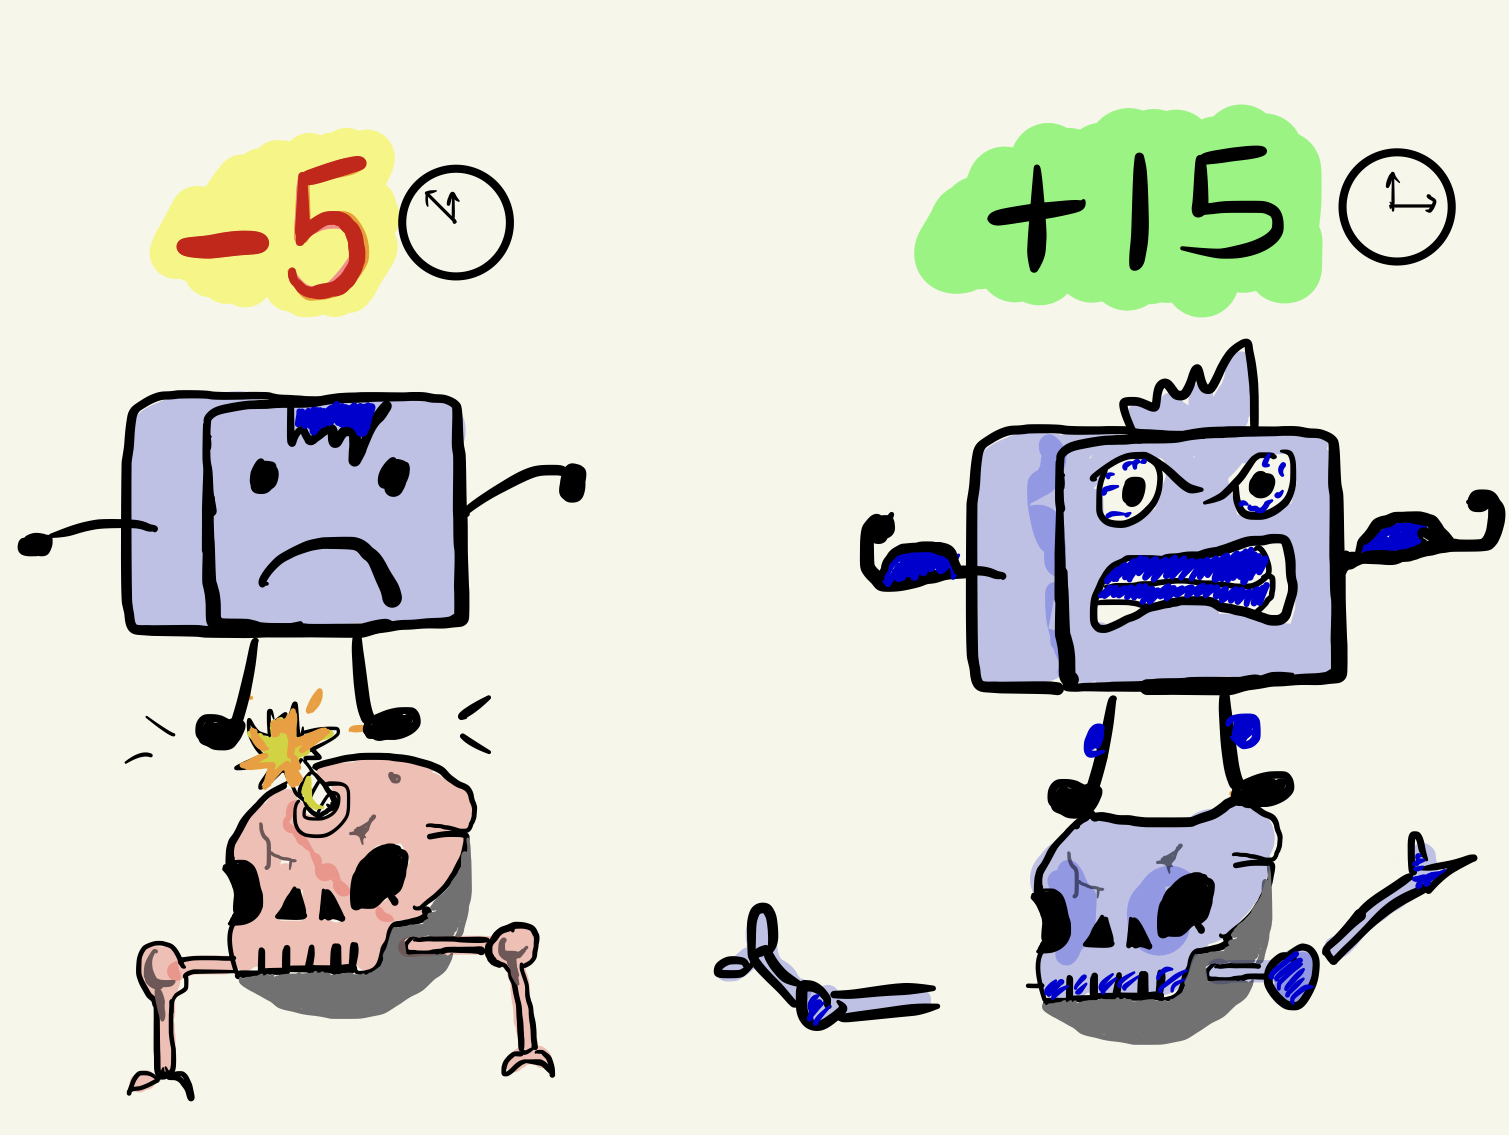 -5
+15